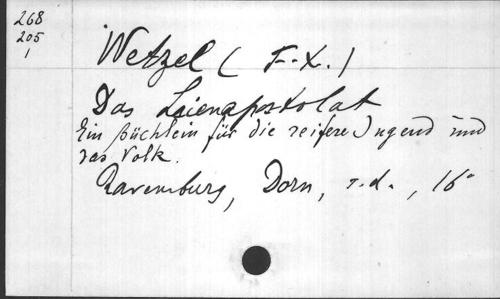 268
205
1
Wetzel ( F.X. )
Das Laienapostolat
Ein Büchlein für die reifere Jugend und
das Volk.
Ravensburg, Dorn, s.d., 16°